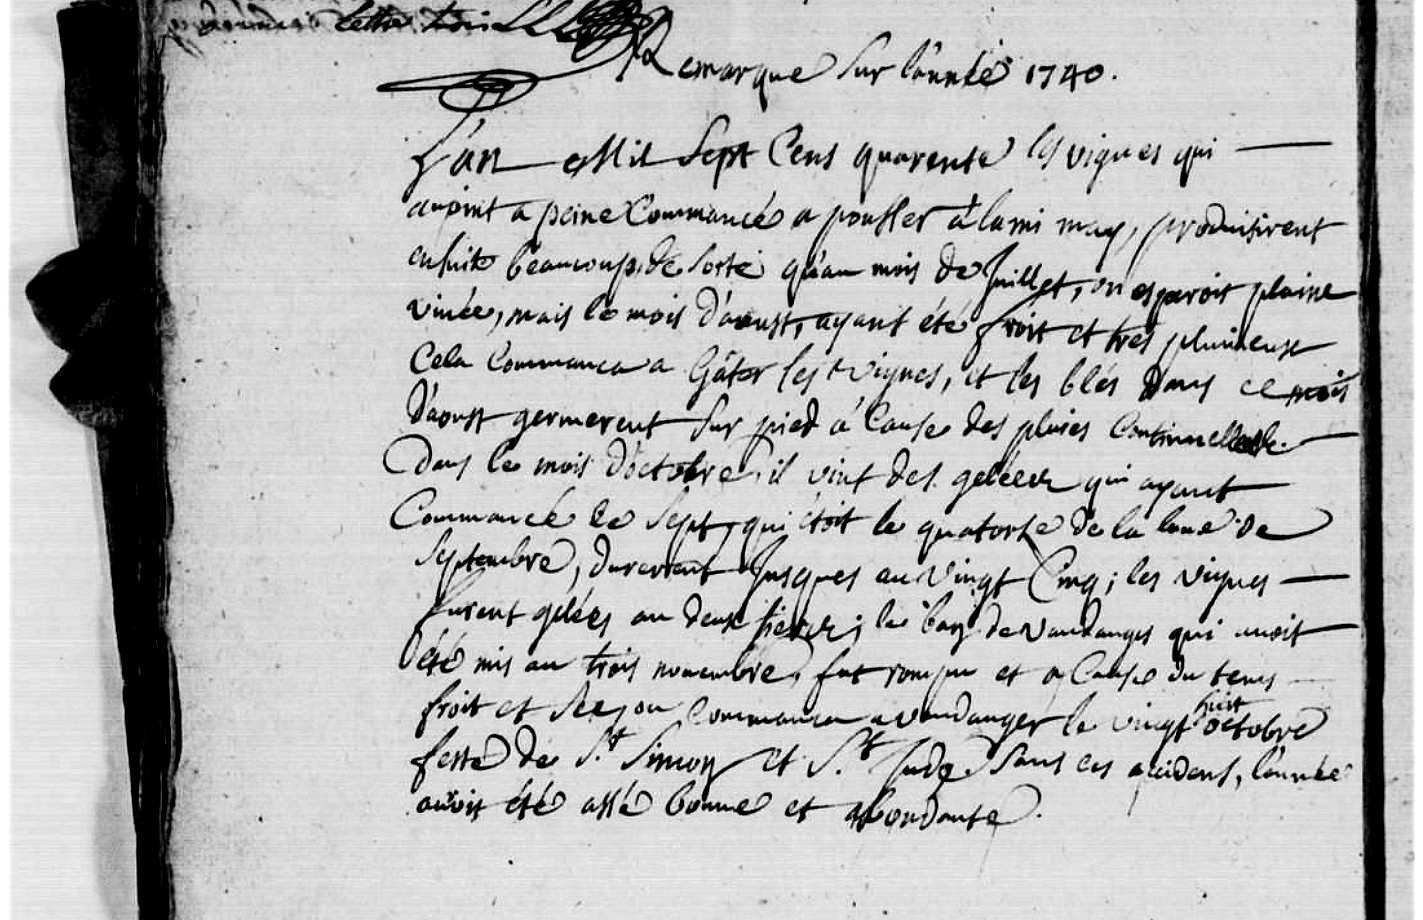 lettre trois
Remarque sur l'année 1740.
L'an Mil Sept Cens quarente les vignes qui
avoint a peine Commancé a pousser à la mi may, produisirent
ensuite beaucoup, de sorte qu'au mois de Juillet, on esperoit plaine
vinée, mais le mois d'aoust, ayant été froit et tres pluvieuse
Cela Commança a Gâter les vignes, et les blés dans ce mois
D'aoust germerent sur pied à Cause des pluies Continuelle.
Dans le mois d'octobre, il vint des gelées qui ayant
Commancé le sept, qui étoit le quatorse de la lune de
septembre, durerent Jusques au vingt Cinq; les vignes
furent gelées au deux tiers; le ban de vandanges qui avoit
été mis au trois novembre, fut rompu et a Cause du tems
froit et sec, on commança a vandanger le vingt huit octobre
feste de St. Simon et St. Jude. Sans ces accidens, l'année
auroit été assé bonne et abondante.